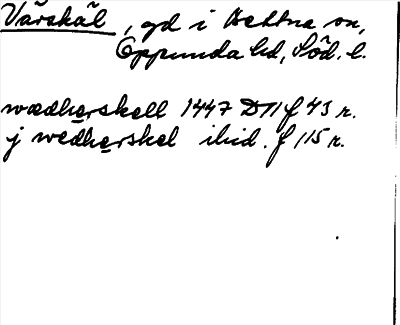 Vårskäl, gd i Bettna sn,
Oppunda hd, Söd. l.
wædherskell 1447 D11 f 43 r.
j wedherskel ibid. f 115 r.